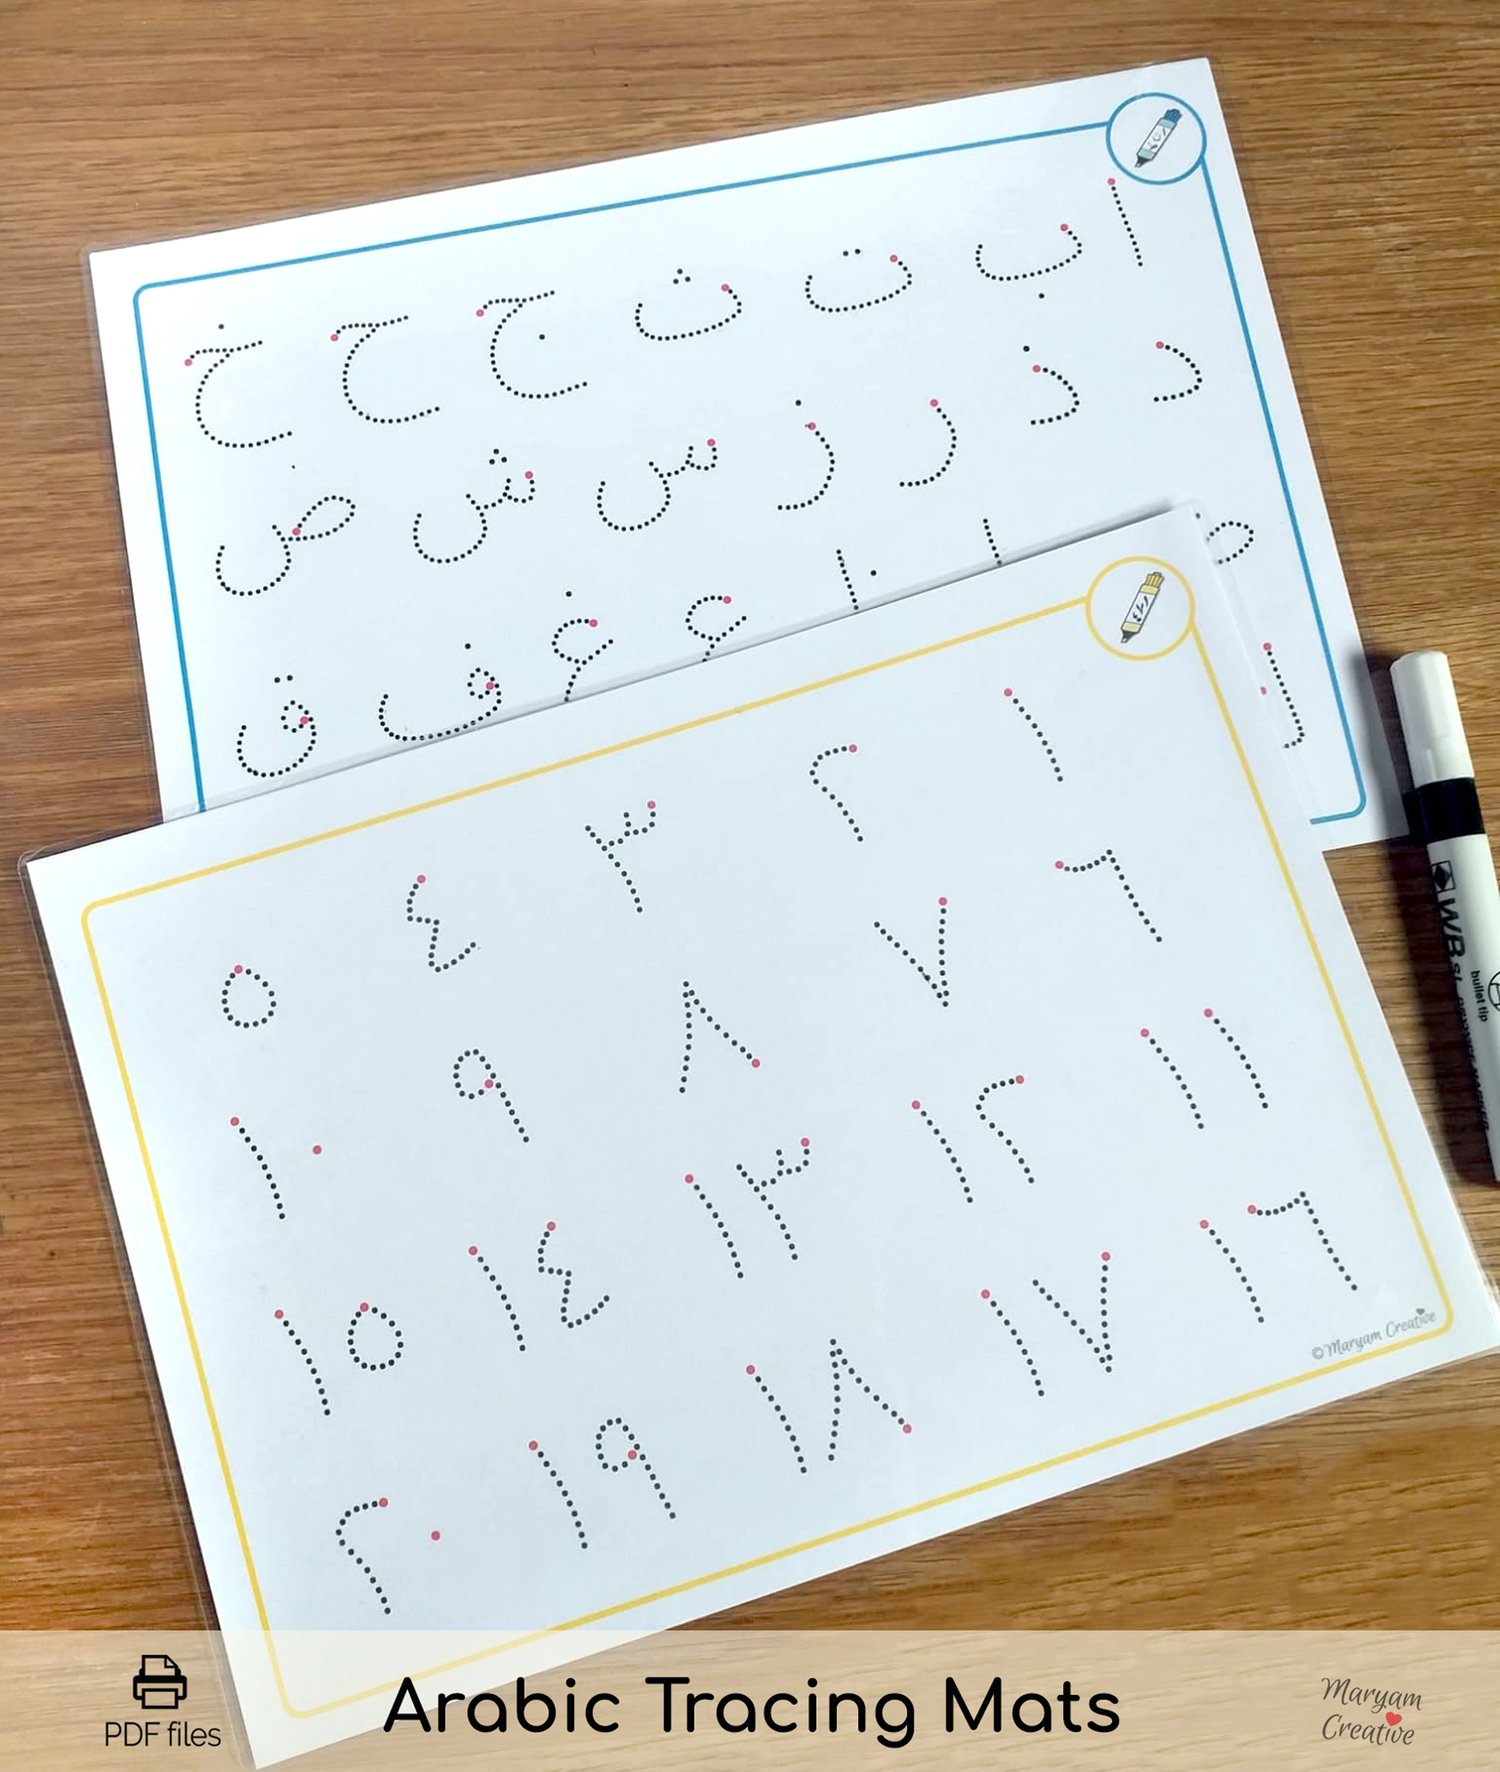 ا ب ت ث ج ح خ
د ذ ر ز س ش ص
ض ط ظ ع غ ف ق
١ ٢ ٣ ٤ ٥
٦ ٧ ٨ ٩ ١٠
١١ ١٢ ١٣ ١٤ ١٥
١٦ ١٧ ١٨ ١٩ ٢٠
©Maryam Creative
bullet tip
PDF files
Arabic Tracing Mats
Maryam
Creative